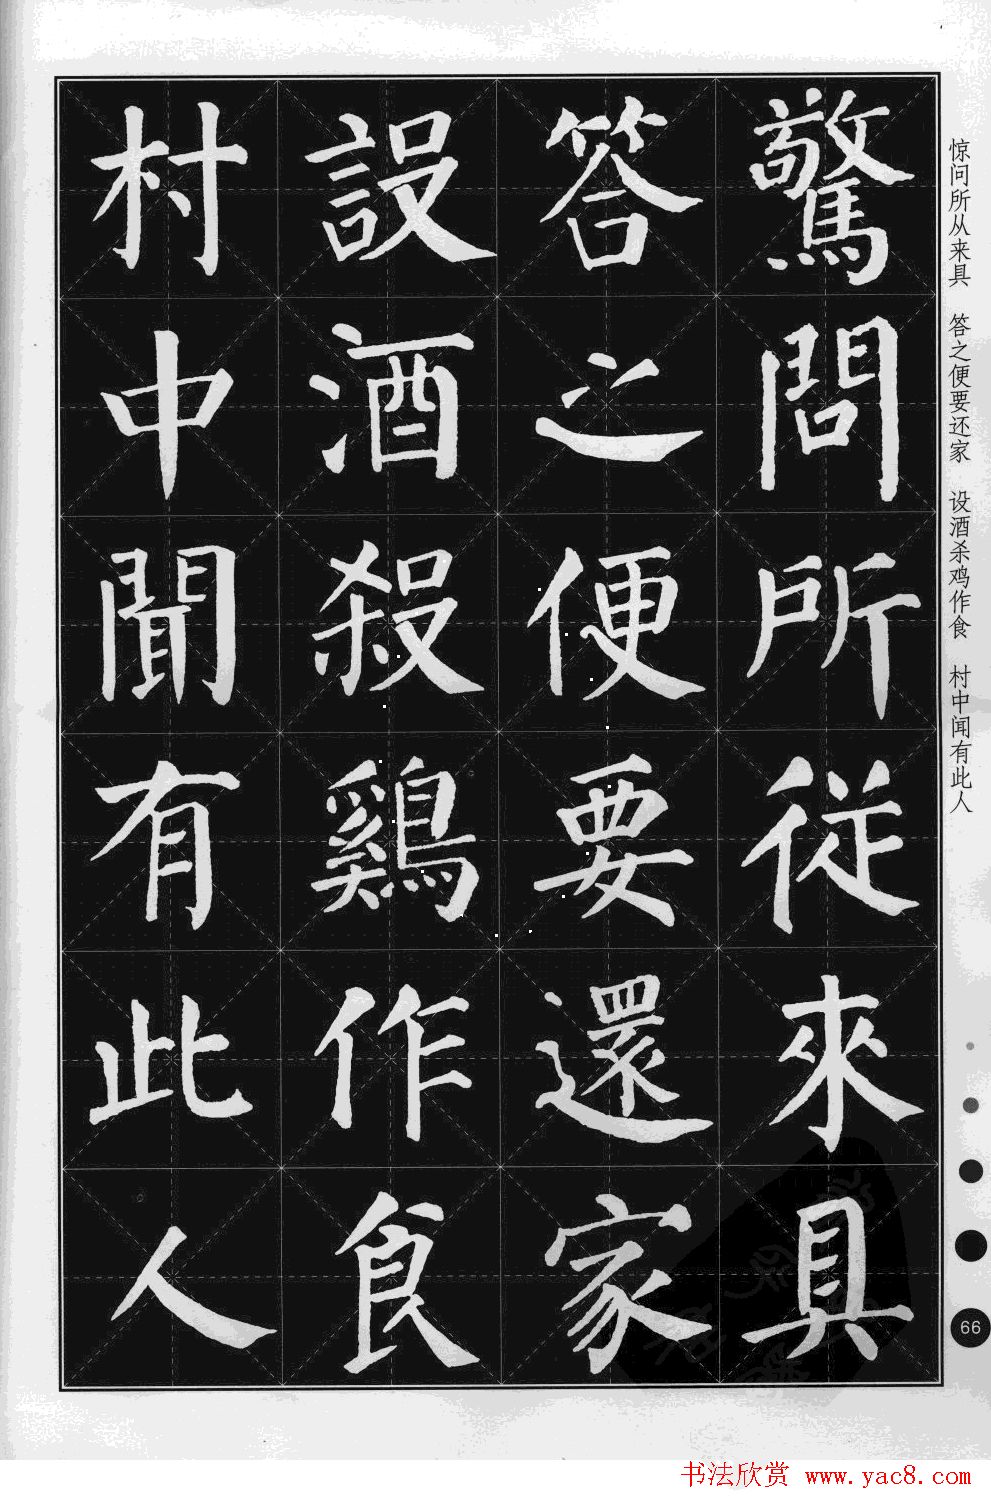 驚問所從來具
答之便要還家
設酒殺鷄作食
村中聞有此人
惊问所从来具 答之便要还家 设酒杀鸡作食 村中闻有此人
66
书法欣赏 www.yac8.com